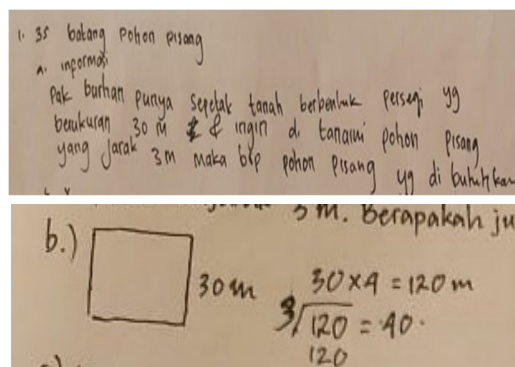 1. 35 batang pohon pisang
a. informasi
Pak burhan punya sepetak tanah berbentuk persegi yg
berukuran 30 m & ingin di tanami pohon pisang
yang jarak 3m maka brp pohon pisang yg di butuhkan
3 m. Berapakah ju
b.)
30 m
30 x 4 = 120 m
3√120 = 40.
120